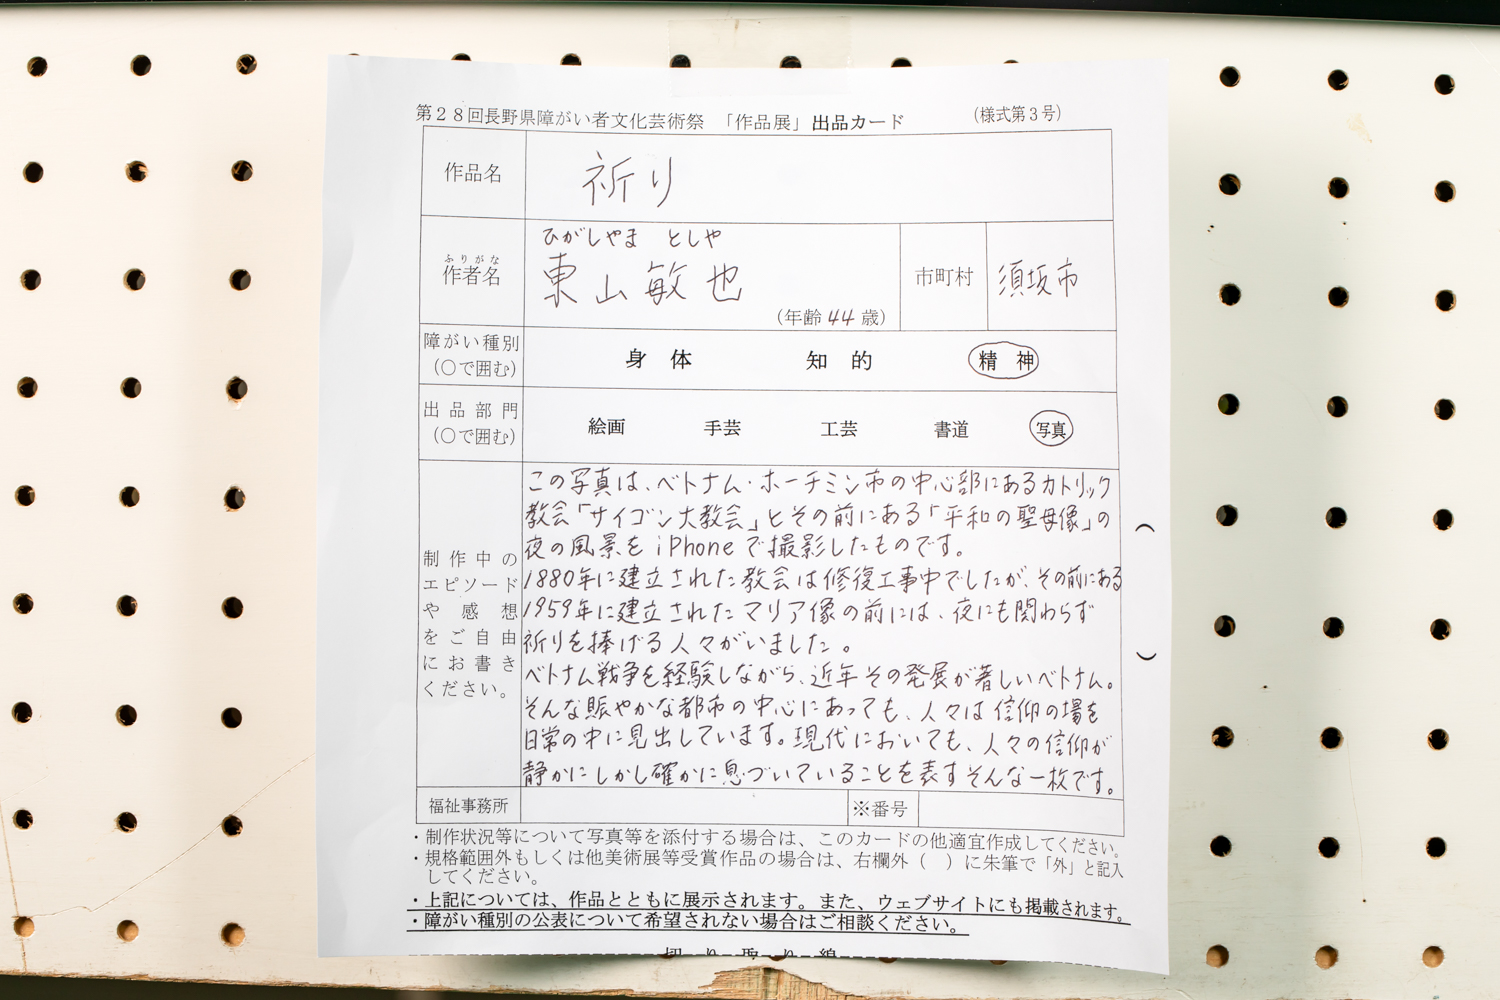 第28回長野県障がい者文化芸術祭 「作品展」出品カード (様式第3号)
作品名 祈り
ひがしやま としや
ふりがな
作者名 東山敏也 市町村 須坂市
(年齢44歳)
障がい種別
(〇で囲む) 身体 知的 精神
出品部門
(〇で囲む) 絵画 手芸 工芸 書道 写真
制作中の
エピソード
や感想
をご自由
にお書き
ください。
この写真は、ベトナム・ホーチミン市の中心部にあるカトリック
教会「サイゴン大教会」とその前にある「平和の聖母像」の
夜の風景をiPhoneで撮影したものです。
1880年に建立された教会は修復工事中でしたが、その前にある
1959年に建立されたマリア像の前には、夜にも関わらず
祈りを捧げる人々がいました。
ベトナム戦争を経験しながら、近年その発展が著しいベトナム。
そんな賑やかな都市の中心にあっても、人々は信仰の場を
日常の中に見出しています。現代においても、人々の信仰が
静かにしかし確かに息づいていることを表すそんな一枚です。
( )
福祉事務所 ※番号
・制作状況等について写真等を添付する場合は、このカードの他適宜作成してください。
・規格範囲外もしくは他美術展等受賞作品の場合は、右欄外( )に朱筆で「外」と記入
してください。
・上記については、作品とともに展示されます。また、ウェブサイトにも掲載されます。
・障がい種別の公表について希望されない場合はご相談ください。
切り取り線